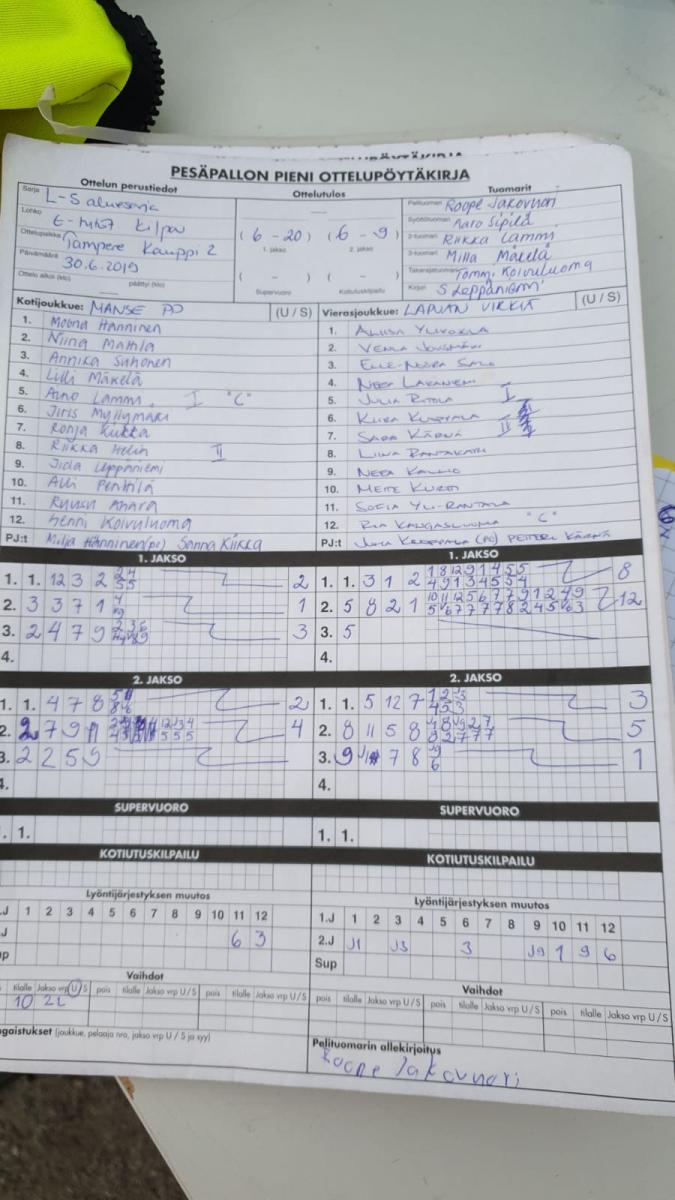 PESÄPALLON PIENI OTTELUPÖYTÄKIRJA
Ottelun perustiedot
Ottelutulos
Tuomarit
Sarja L-S aluesarja
Lohko E-tytöt kilpa
Ottelupaikka Tampere Kauppi 2
Päivämäärä 30.6.2019
Ottelu alkoi (klo) päättyi (klo)
(6 - 20) (6 - 9)
1. jakso 2. jakso
( - ) ( - )
Supervuoro Kotiutuskilpailu
Pelituomari Roope Jakovuori
Syöttötuomari Aaro Sipilä
2-tuomari Riikka Lammi
3-tuomari Milla Mäkelä
Takarajatuomari Tommi Koivuluoma
Kirjuri S Leppäniemi
Kotijoukkue: MANSE PP (U / S)
1. Moona Hänninen
2. Niina Mattila
3. Annika Suhonen
4. Lilli Mäkelä
5. Aino Lammi I "C"
6. Jiris Myllymäki
7. Ronja Kiikka
8. Riikka Helin II
9. Jida Leppäniemi
10. Alli Penttilä
11. Ruusu Ahara
12. Henni Koivuluoma
PJ:t Milja Hänninen (pj) Sanna Kiikka
Vierasjoukkue: LAPUAN VIRKIÄ (U / S)
1.
2. VENLA
3. ELLE-NOORA SALO
4. NEEA
5. JULIA RITOLA I
6. KIIRA KUOPPALA
7. SAGA KÄRNÄ II
8. LIINA RANTAKARI
9. NEEA KALLIO
10. METTE KURTTI
11. SOFIA YLI-RANTALA
12. PIA KANGASLUOMA "C"
PJ:t JUHA KUOPPALA (PJ) PETTERI KÄRNÄ
1. JAKSO
1. 1. 12 3 2 2
2. 3 3 7 1 1
3. 2 4 7 9 3
4.
1. JAKSO
1. 1. 3 1 2 1 8 12 9 1 4 5 5 8
4 9 1 3 4 5 5 4
2. 5 8 2 1 10 11 12 5 6 7 7 9 1 2 4 9 12
3. 5
4.
2. JAKSO
1. 1. 4 7 8 2
2. 2 7 9 11 4
3. 2 2 5 9
4.
2. JAKSO
1. 1. 5 12 7 3
2. 8 11 5 8 5
3. 9 7 8 1
4.
SUPERVUORO
1. 1.
SUPERVUORO
1. 1.
KOTIUTUSKILPAILU
KOTIUTUSKILPAILU
Lyöntijärjestyksen muutos
.J 1 2 3 4 5 6 7 8 9 10 11 12
.J 6 3
Lyöntijärjestyksen muutos
1.J 1 2 3 4 5 6 7 8 9 10 11 12
2.J J1 J3 3 J9 1 9 6
Sup
Vaihdot
tilalle Jakso vrp U / S pois tilalle Jakso vrp U / S pois tilalle Jakso vrp U / S
10 2L
Vaihdot
pois tilalle Jakso vrp U / S pois tilalle Jakso vrp U / S pois tilalle Jakso vrp U / S
ngaistukset (joukkue, pelaaja nro, jakso vrp U / S ja syy)
Pelituomarin allekirjoitus
Roope Jakovuori